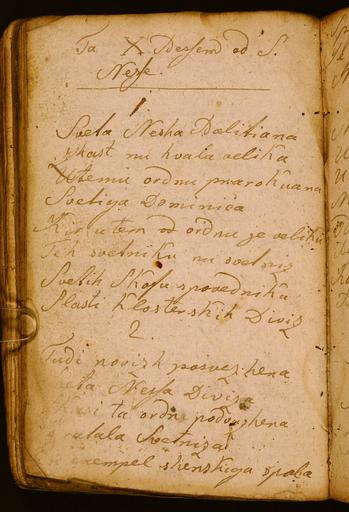 Ta X Pessem od S.
Neshe.
1
Sveta Nesha Dalitiana
zhast nu hvala velika
Utemu ordnu prarokuana
Svetiga Dominica
Kir utem od ordnu je veliku
Teh svetniku nu svetniz
Svetih Shofu spovedniku
Slasti Klosterskih Diviz
2.
Tudi novizh posveshena
Sveta Nesha Diviza
ta ordn podvershena
ratala Svetniza
exempel shenskiga spola